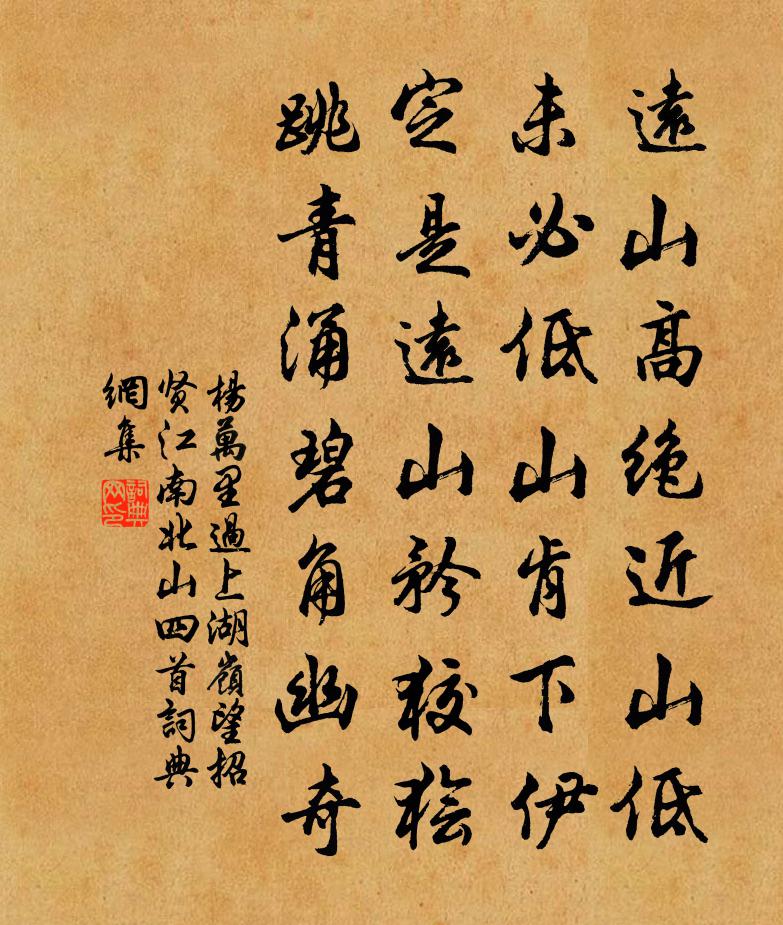 遠山高絶近山低
未必低山肯下伊
定是遠山矜狡獪
跳青涌碧角幽奇
楊萬里過上湖嶺望招
賢江南北山四首詞典
網集
詞典
网印